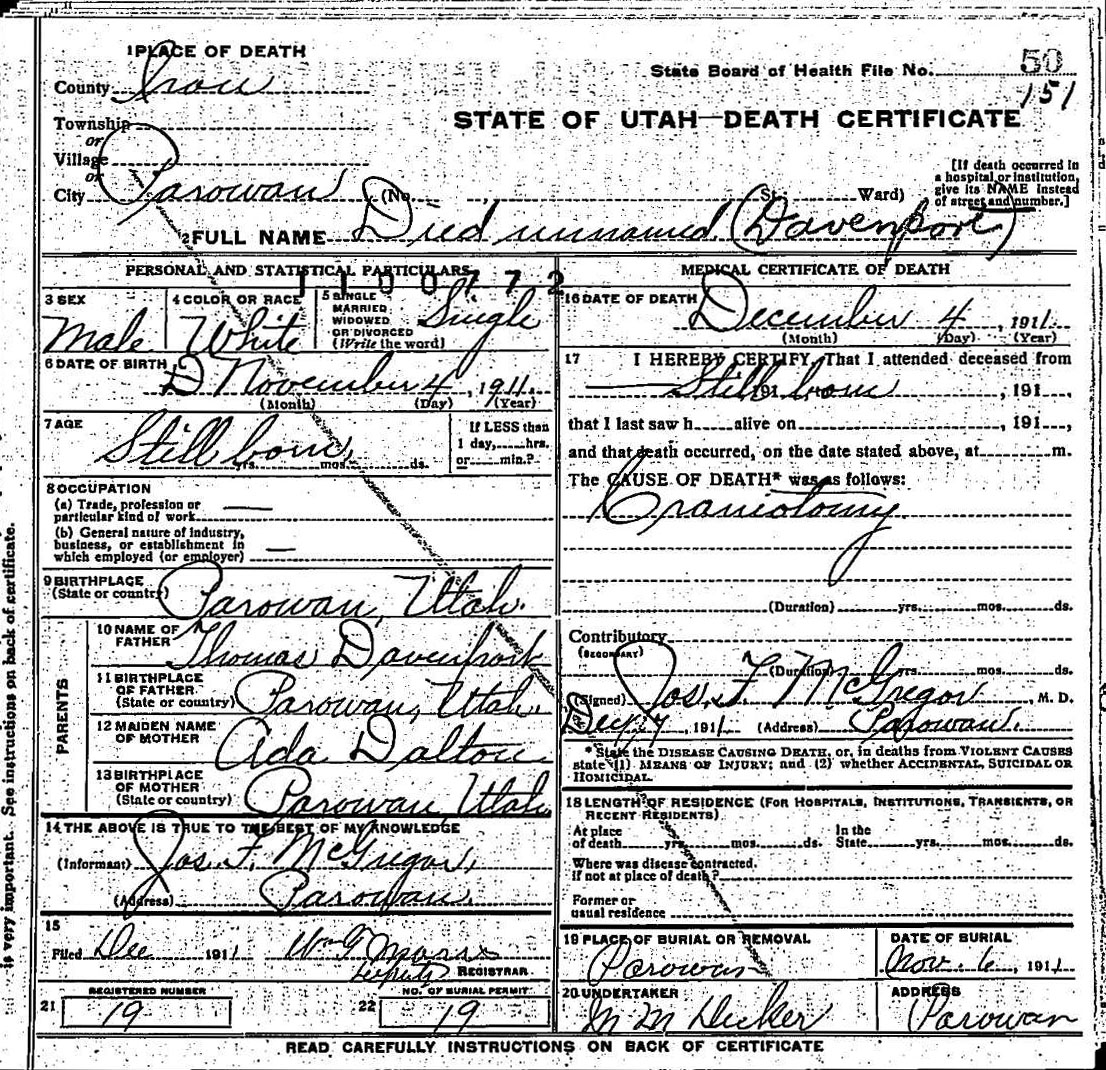 1 PLACE OF DEATH
State Board of Health File No. 50
151
County Iron
STATE OF UTAH—DEATH CERTIFICATE
Township
or
Village
or
City Parowan (No. , St. Ward)
[If death occurred in a hospital or institution, give its NAME instead of street and number.]
2 FULL NAME Died unnamed (Davenport)
PERSONAL AND STATISTICAL PARTICULARS
1100772
3 SEX
Male
4 COLOR OR RACE
White
5 SINGLE
MARRIED
WIDOWED
OR DIVORCED
(Write the word)
Single
6 DATE OF BIRTH
November 4, 1911.
(Month) (Day) (Year)
7 AGE
Still born
yrs. mos. ds.
If LESS than
1 day, hrs.
or min.?
8 OCCUPATION
(a) Trade, profession or
particular kind of work —
(b) General nature of industry,
business, or establishment in
which employed (or employer) —
9 BIRTHPLACE
(State or country) Parowan, Utah.
PARENTS
10 NAME OF
FATHER Thomas Davenport
11 BIRTHPLACE
OF FATHER
(State or country) Parowan, Utah.
12 MAIDEN NAME
OF MOTHER Ada Dalton
13 BIRTHPLACE
OF MOTHER
(State or country) Parowan, Utah
14 THE ABOVE IS TRUE TO THE BEST OF MY KNOWLEDGE
(Informant) Jos. F. McGregor,
(Address) Parowan.
15
Filed Dec 1911 Wm G
Deputy REGISTRAR
21 REGISTERED NUMBER
19
22 NO. OF BURIAL PERMIT
19
MEDICAL CERTIFICATE OF DEATH
16 DATE OF DEATH
December 4, 1911.
(Month) (Day) (Year)
17 I HEREBY CERTIFY, That I attended deceased from
Still born 191 , 191 ,
that I last saw h alive on , 191 ,
and that death occurred, on the date stated above, at m.
The CAUSE OF DEATH* was as follows:
Craniotomy
(Duration) yrs. mos. ds.
Contributory
(SECONDARY)
(Duration) yrs. mos. ds.
(Signed) Jos. F. McGregor, M. D.
7, 1911 (Address) Parowan.
* State the DISEASE CAUSING DEATH, or, in deaths from VIOLENT CAUSES
state (1) MEANS OF INJURY; and (2) whether ACCIDENTAL, SUICIDAL OR
HOMICIDAL.
18 LENGTH OF RESIDENCE (FOR HOSPITALS, INSTITUTIONS, TRANSIENTS, OR
RECENT RESIDENTS)
At place
of death yrs. mos. ds.
In the
State yrs. mos. ds.
Where was disease contracted.
if not at place of death?
Former or
usual residence
19 PLACE OF BURIAL OR REMOVAL
Parowan
DATE OF BURIAL
Nov. 6, 1911
20 UNDERTAKER
M M Decker
ADDRESS
Parowan
READ CAREFULLY INSTRUCTIONS ON BACK OF CERTIFICATE
is very important. See instructions on back of certificate.